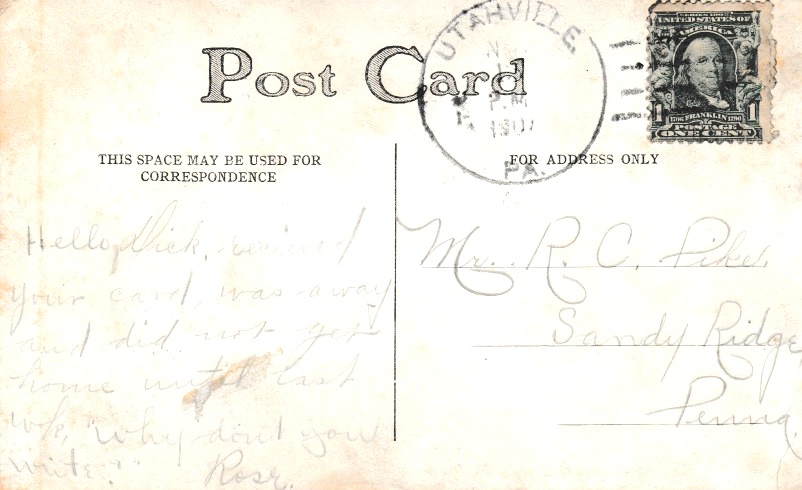 Post Card
UTAHVILLE,
P.M.
1907
PA.
SERIES 1902
UNITED STATES OF
AMERICA
1706 FRANKLIN 1790
1 1
POSTAGE
ONE CENT
THIS SPACE MAY BE USED FOR
CORRESPONDENCE
FOR ADDRESS ONLY
Hello, Dick, recieved
your card, was away
and did not get
home until last
wk, "why don't you
write?" Rose.
Mr. R. C. Pike,
Sandy Ridge,
Penna.